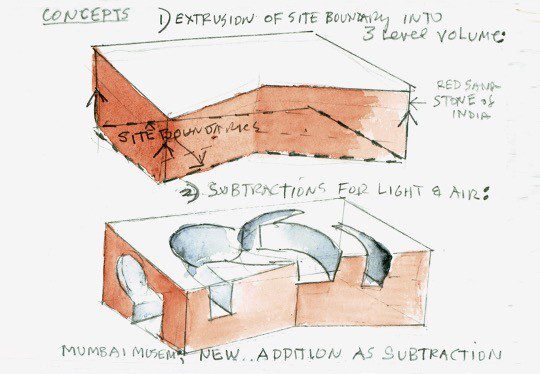 CONCEPTS
1) EXTRUSION OF SITE BOUNDARY INTO
3 Level VOLUME:
RED SAND
STONE OF
INDIA
SITE BOUNDARIES
2) SUBTRACTIONS FOR LIGHT & AIR:
MUMBAI MUSEM; NEW.. ADDITION AS SUBTRACTION